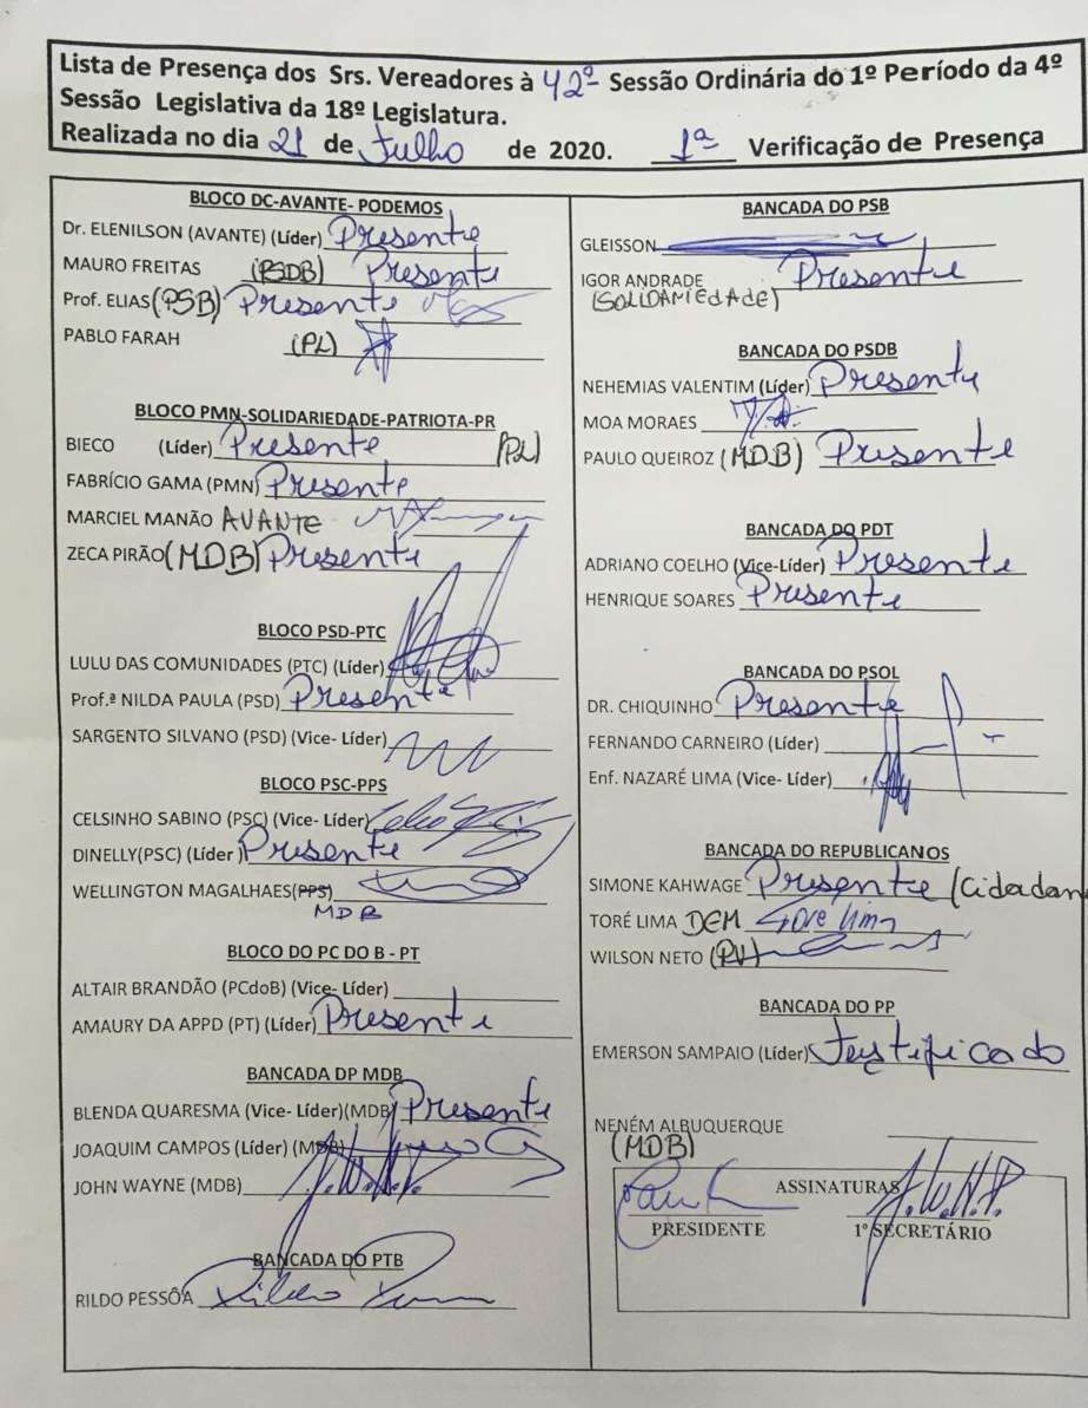 Lista de Presença dos Srs. Vereadores à 42º Sessão Ordinária do 1º Período da 4º
Sessão Legislativa da 18º Legislatura.
Realizada no dia 21 de Julho de 2020. 1ª Verificação de Presença
BLOCO DC-AVANTE- PODEMOS
Dr. ELENILSON (AVANTE) (Líder) Presente
MAURO FREITAS (PSDB) Presente
Prof. ELIAS (PSB) Presente
PABLO FARAH (PL)
BLOCO PMN-SOLIDARIEDADE-PATRIOTA-PR
BIECO (Líder) Presente (PL)
FABRÍCIO GAMA (PMN) Presente
MARCIEL MANÃO AVANTE
ZECA PIRÃO (MDB) Presente
BLOCO PSD-PTC
LULU DAS COMUNIDADES (PTC) (Líder)
Prof.ª NILDA PAULA (PSD) Presente
SARGENTO SILVANO (PSD) (Vice- Líder)
BLOCO PSC-PPS
CELSINHO SABINO (PSC) (Vice- Líder)
DINELLY(PSC) (Líder ) Presente
WELLINGTON MAGALHAES(PPS)
MDB
BLOCO DO PC DO B - PT
ALTAIR BRANDÃO (PCdoB) (Vice- Líder)
AMAURY DA APPD (PT) (Líder) Presente
BANCADA DP MDB
BLENDA QUARESMA (Vice- Líder)(MDB) Presente
JOAQUIM CAMPOS (Líder) (MDB)
JOHN WAYNE (MDB) J.W.N.P.
BANCADA DO PTB
RILDO PESSÔA Rildo Pessoa
BANCADA DO PSB
GLEISSON
IGOR ANDRADE Presente
(SOLIDARIEdAde)
BANCADA DO PSDB
NEHEMIAS VALENTIM (Líder) Presente
MOA MORAES
PAULO QUEIROZ (MDB) Presente
BANCADA DO PDT
ADRIANO COELHO (Vice-Líder) Presente
HENRIQUE SOARES Presente
BANCADA DO PSOL
DR. CHIQUINHO Presente
FERNANDO CARNEIRO (Líder)
Enf. NAZARÉ LIMA (Vice- Líder)
BANCADA DO REPUBLICANOS
SIMONE KAHWAGE Presente (Cidadan
TORÉ LIMA DEM Tore Lima
WILSON NETO (PV)
BANCADA DO PP
EMERSON SAMPAIO (Líder) Justificado
NENÉM ALBUQUERQUE
(MDB)
ASSINATURAS J.W.N.P.
PRESIDENTE 1º SECRETÁRIO